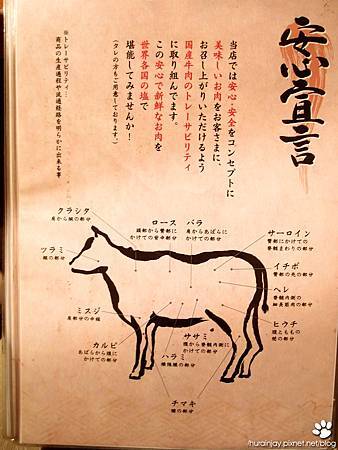 安心宣言
当店では安心・安全をコンセプトに
美味しいお肉をお客さまに、
お召し上がりいただけるよう
国産牛肉のトレーサビリティ
に取り組んでます。
この安心で新鮮なお肉を
世界各国の塩で
堪能してみませんか！
（タレの方もご用意しております）
※トレーサビリティ…
商品の生産過程や流通経路を明らかに出来る事
クラシタ
肩から腰の部分
ロース
頭部から臀部に
かけての背中部分
バラ
肩からあばらに
かけての部分
サーロイン
臀部にかけての
脊髄まわりの部分
ツラミ
頬の部分
イチボ
臀部の先の部分
ヘレ
脊髄内側の
細長筋肉の部分
ミスジ
肩部分の中核
ヒウチ
カルビ
あばらから腹に
かけての部分
ササミ
腹から脊髄内側に
かけての部分
ハラミ
横隔膜の部分
チマキ
脚の部分
/hurainjay.pixnet.net/blog